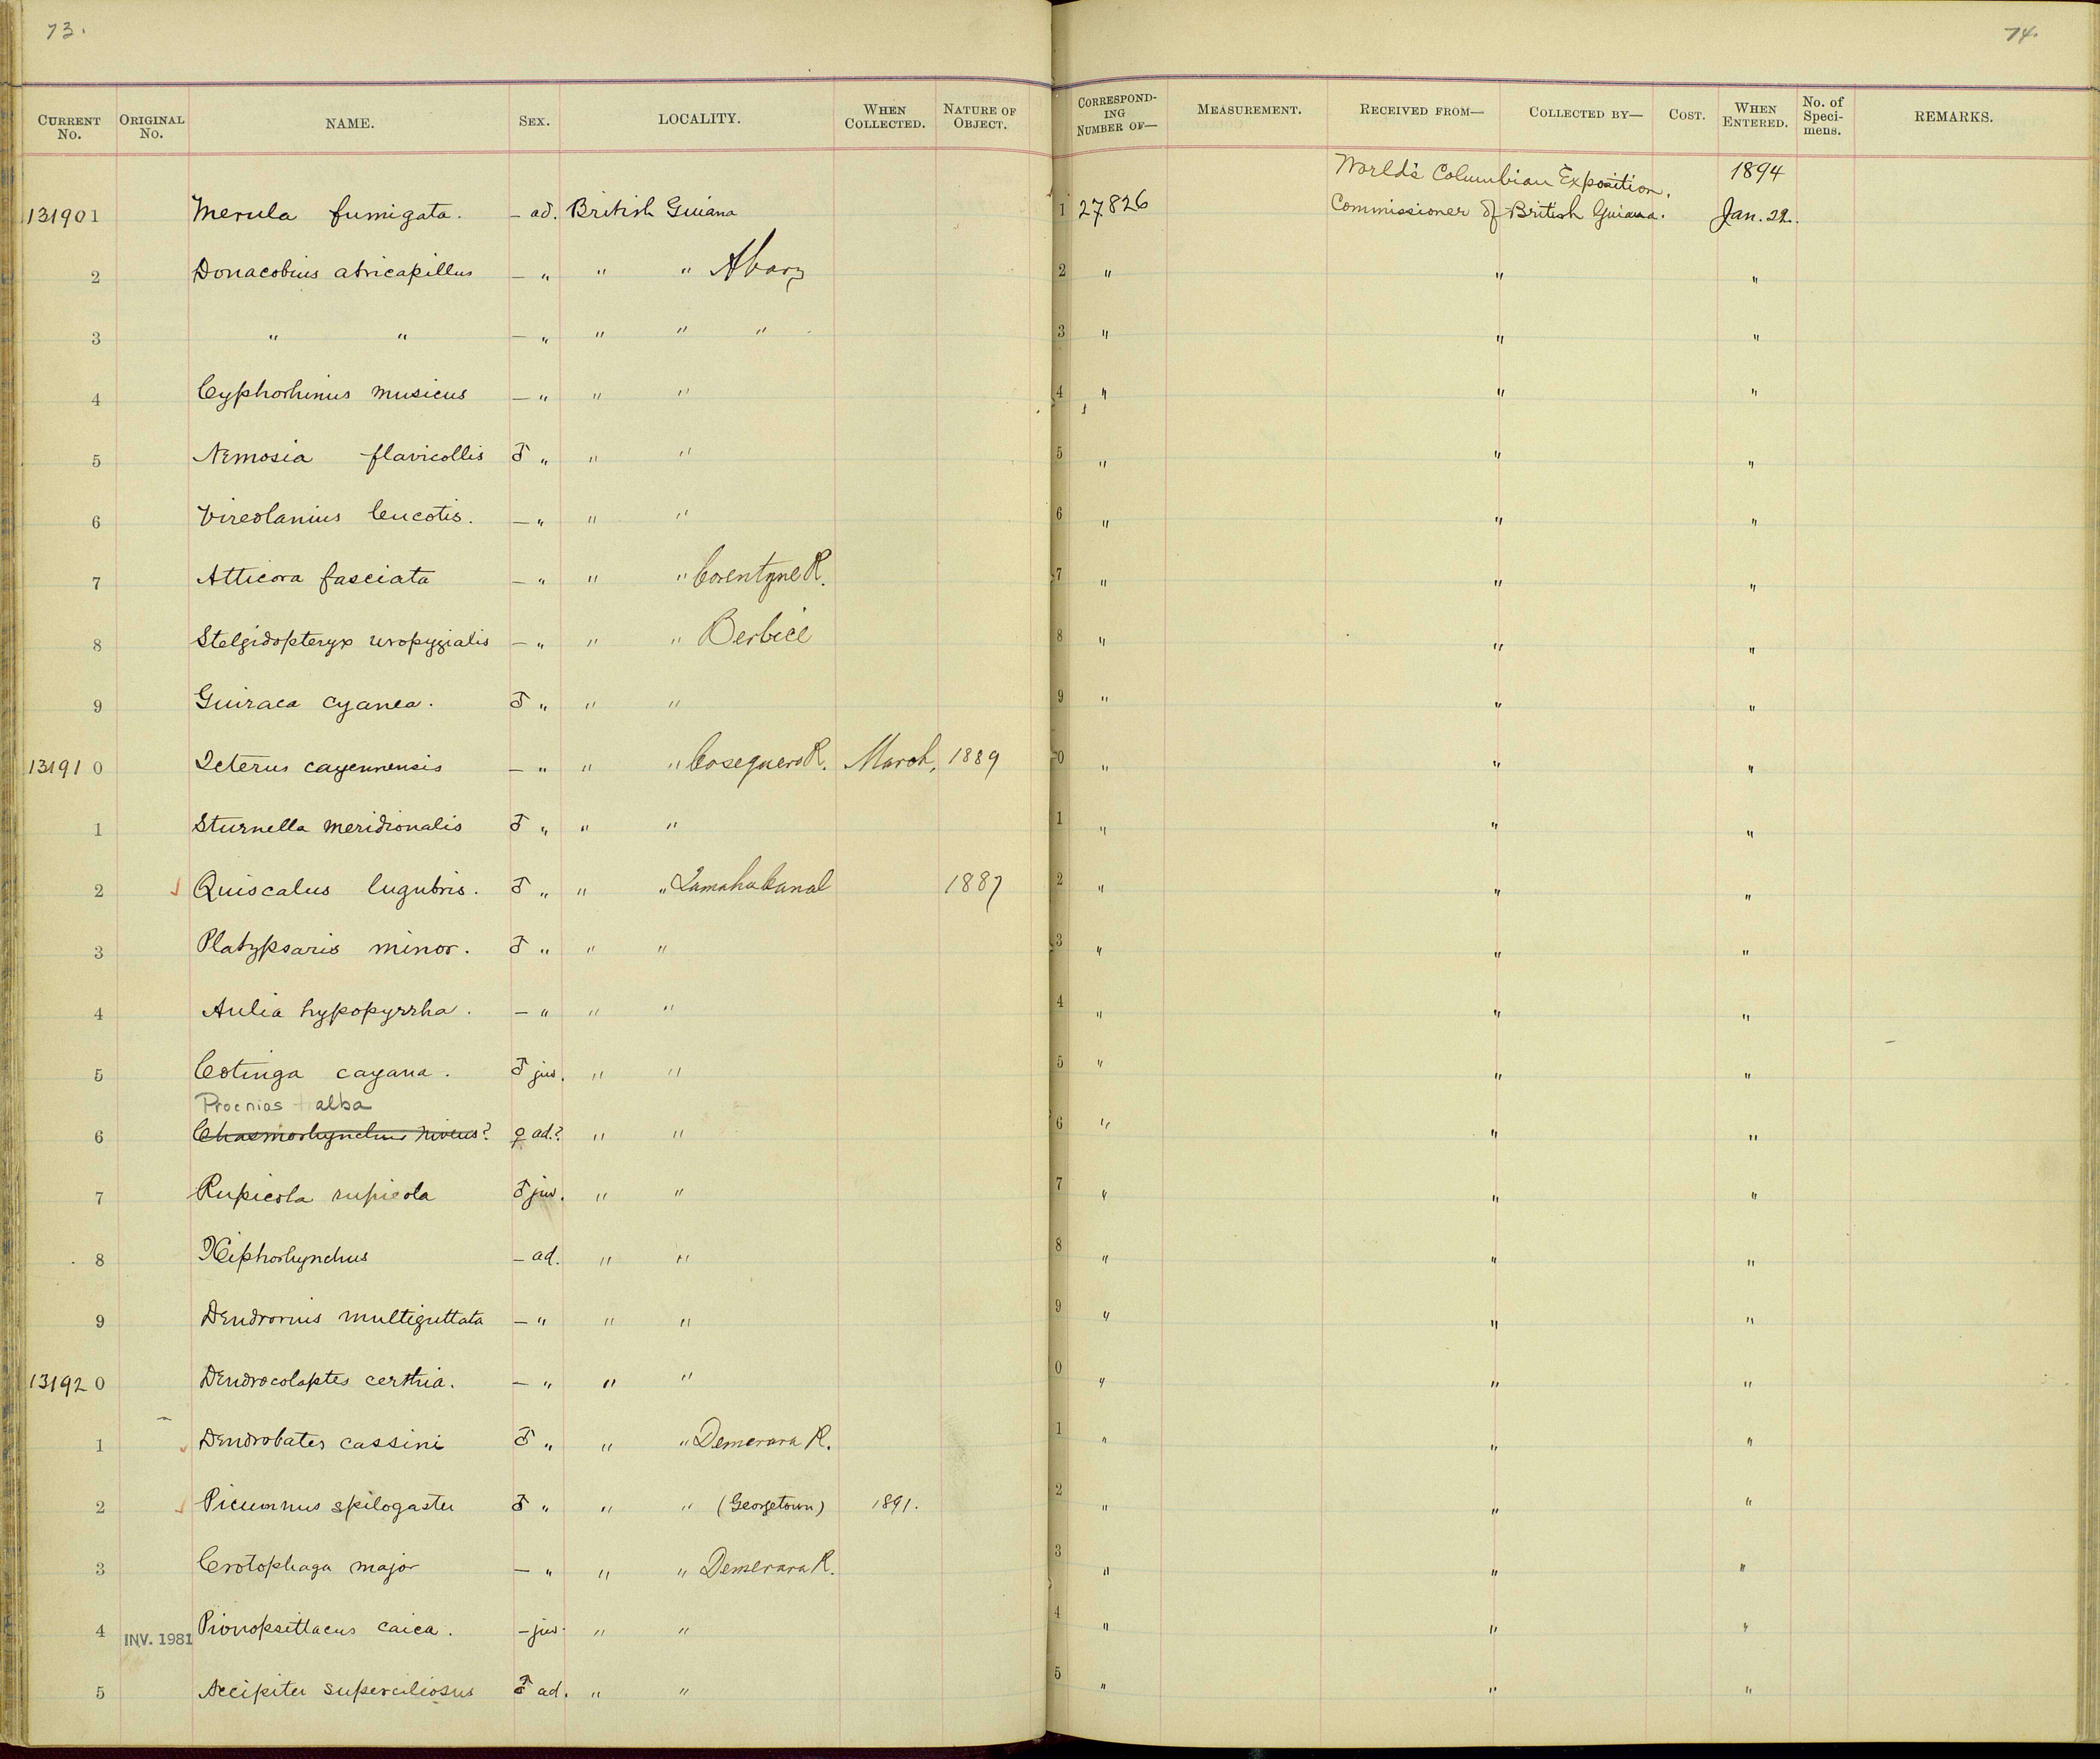 73.
CURRENT No. ORIGINAL No. NAME. SEX. LOCALITY. WHEN COLLECTED. NATURE OF OBJECT.
131901 Merula fumigata. – ad. British Guiana
2 Donacobius atricapillus – " " " Abary
3 " " – " " " "
4 Cyphorhinus musicus – " " "
5 Nemosia flavicollis ♂ " " "
6 Vireolanius leucotis. – " " "
7 Atticora fasciata – " " " Corentyne R.
8 Stelgidopteryx uropygialis – " " " Berbice
9 Guiraca cyanea. ♂ " " "
131910 Icterus cayennensis – " " " March, 1889
1 Sturnella meridionalis ♂ " " "
2 Quiscalus lugubris. ♂ " " " Lamaha Canal 1887
3 Platypsaris minor. ♂ " " "
4 Aulia hypopyrrha. – " " "
5 Cotinga cayana. ♂ juv. " "
Procnias alba
6 Chasmorhynchus niveus? ♀ ad.? " "
7 Rupicola rupicola ♂ juv. " "
8 Xiphorhynchus – ad. " "
9 Dendrornis multiguttata – " " "
131920 Dendrocolaptes certhia. – " " "
1 Dendrobates cassini ♂ " " " Demerara R.
2 Picumnus spilogaster ♂ " " " (Georgetown) 1891.
3 Crotophaga major – " " " Demerara R.
4 INV. 1981 Pionopsittacus caica. – juv. " "
5 Accipiter superciliosus ♂ ad. " "
74.
CORRESPONDING NUMBER OF— MEASUREMENT. RECEIVED FROM— COLLECTED BY— COST. WHEN ENTERED. No. of Specimens. REMARKS.
World's Columbian Exposition. 1894
1 27826 Commissioner of British Guiana. Jan. 22.
2 " " "
3 " " "
4 " " "
5 " " "
6 " " "
7 " " "
8 " " "
9 " " "
0 " " "
1 " " "
2 " " "
3 " " "
4 " " "
5 " " "
6 " " "
7 " " "
8 " " "
9 " " "
0 " " "
1 " " "
2 " " "
3 " " "
4 " " "
5 " " "